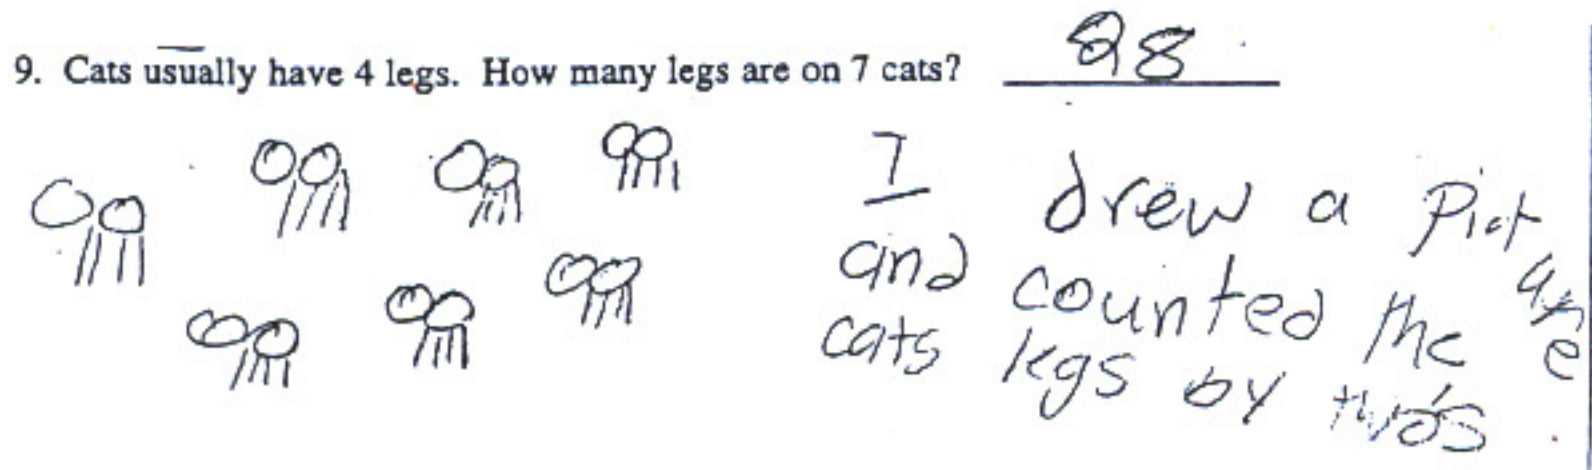 9. Cats usually have 4 legs. How many legs are on 7 cats? 28
I drew a Picture
and counted the
cats legs by two's